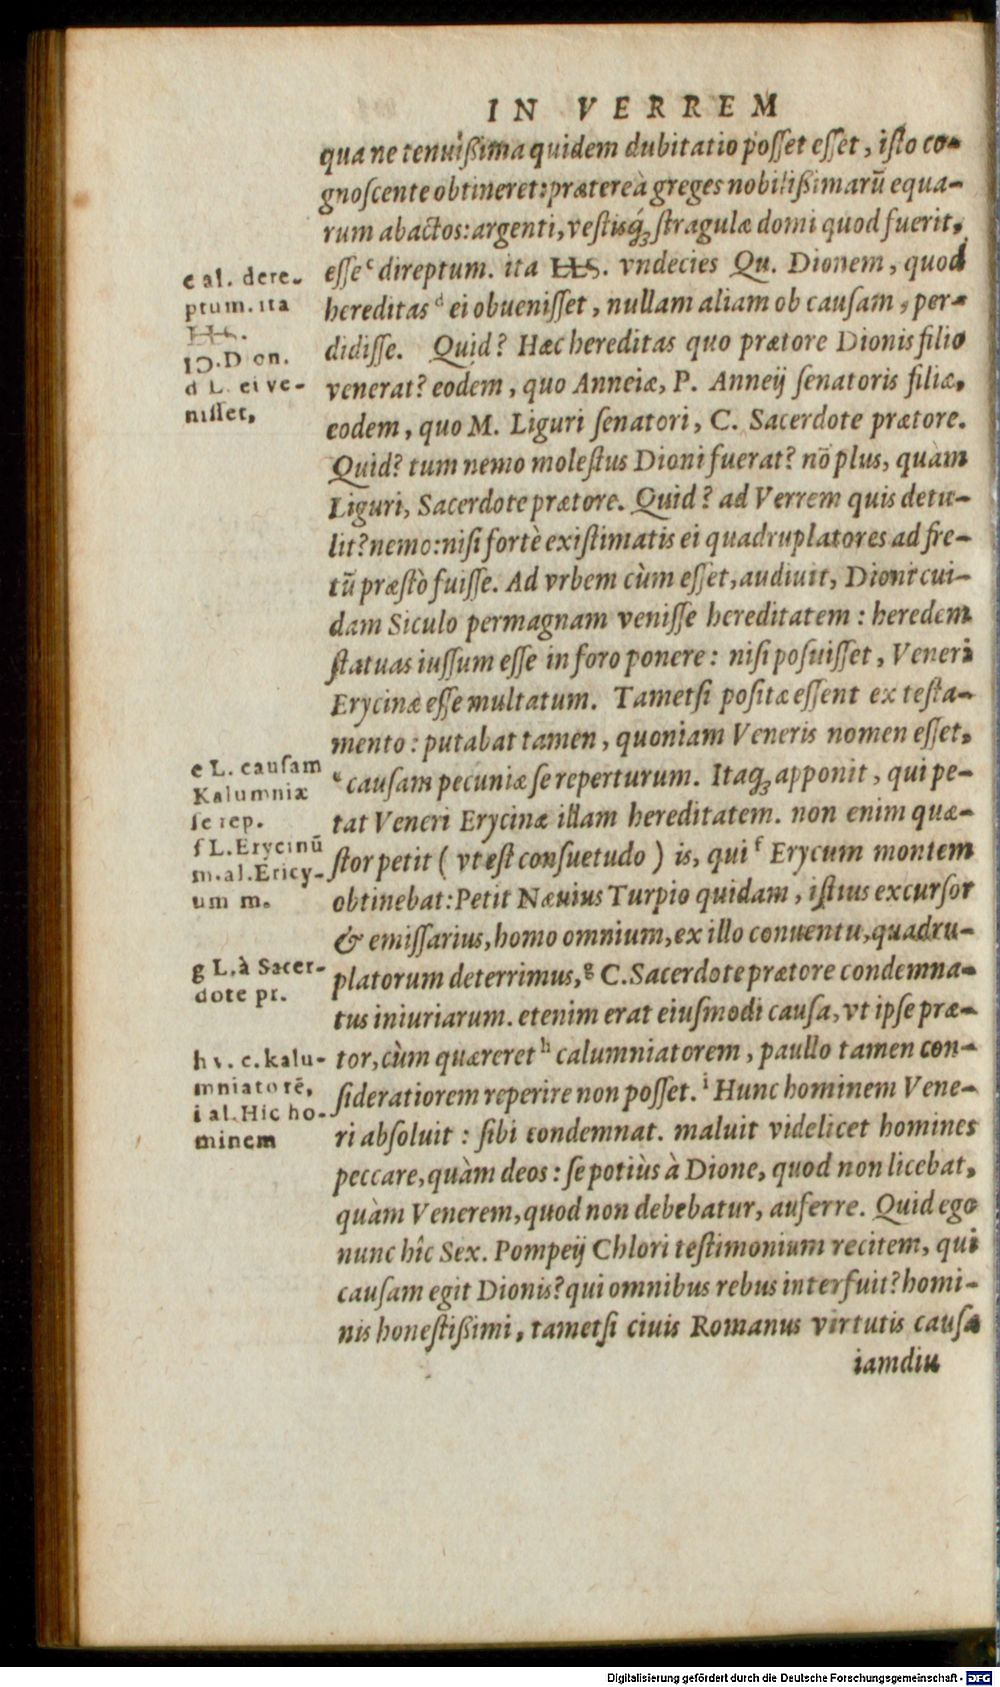 IN VERREM
qua ne tenuißima quidem dubitatio poſſet eſſet, iſto co-
gnoſcente obtineret: prætereà greges nobilißimarũ equa-
rum abactos: argenti, veſtisq́; ſtragulæ domi quod fuerit,
eſſe ᶜ direptum. ita HS. vndecies Qu. Dionem, quod
hereditas ᵈ ei obueniſſet, nullam aliam ob cauſam, per-
didiſſe. Quid? Hæc hereditas quo prætore Dionis filio
venerat? eodem, quo Anneiæ, P. Anneij ſenatoris filiæ,
eodem, quo M. Liguri ſenatori, C. Sacerdote prætore.
Quid? tum nemo moleſtus Dioni fuerat? nõ plus, quàm
Liguri, Sacerdote prætore. Quid? ad Verrem quis detu-
lit? nemo: niſi fortè exiſtimatis ei quadruplatores ad fre-
tũ præſtò fuiſſe. Ad vrbem cùm eſſet, audiuit, Dioni cui-
dam Siculo permagnam veniſſe hereditatem: heredem
ſtatuas iuſſum eſſe in foro ponere: niſi poſuiſſet, Veneri
Erycinæ eſſe multatum. Tametſi poſitæ eſſent ex teſta-
mento: putabat tamen, quoniam Veneris nomen eſſet,
ᵉ cauſam pecuniæ ſe reperturum. Itaq; apponit, qui pe-
tat Veneri Erycinæ illam hereditatem. non enim quæ-
ſtor petit (vt eſt conſuetudo) is, qui ᶠ Erycum montem
obtinebat: Petit Næuius Turpio quidam, iſtius excurſor
& emiſſarius, homo omnium, ex illo conuentu, quadru-
platorum deterrimus, ᵍ C. Sacerdote prætore condemna-
tus iniuriarum. etenim erat eiuſmodi cauſa, vt ipſe præ-
tor, cùm quæreret ʰ calumniatorem, paullo tamen con-
ſideratiorem reperire non poſſet. ⁱ Hunc hominem Vene-
ri abſoluit: ſibi condemnat. maluit videlicet homines
peccare, quàm deos: ſe potiùs à Dione, quod non licebat,
quàm Venerem, quod non debebatur, auferre. Quid ego
nunc hîc Sex. Pompeij Chlori teſtimonium recitem, qui
cauſam egit Dionis? qui omnibus rebus interfuit? homi-
nis honeſtißimi, tametſi ciuis Romanus virtutis cauſa
iamdiu
c al. dere-
ptum. ita
HS.
IↃ. Dion.
d L. ei ve-
niſſet,
e L. cauſam
Kalumniæ
ſe rep.
f L. Erycinũ
m. al. Ericy-
um m.
g L. à Sacer-
dote pr.
h v. c. kalu-
mniatorẽ,
i al. Hic ho-
minem
Digitalisierung gefördert durch die Deutsche Forschungsgemeinschaft - DFG